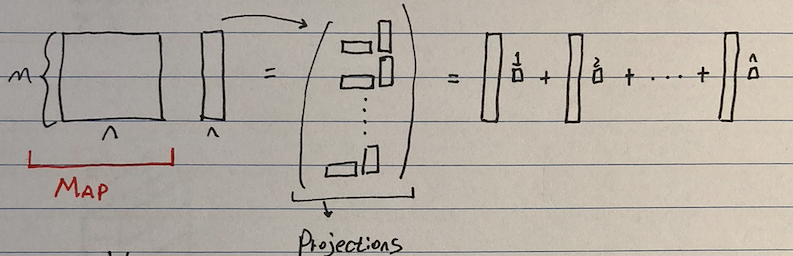 m n n = = 1 + 2 + ... + n
MAP
Projections